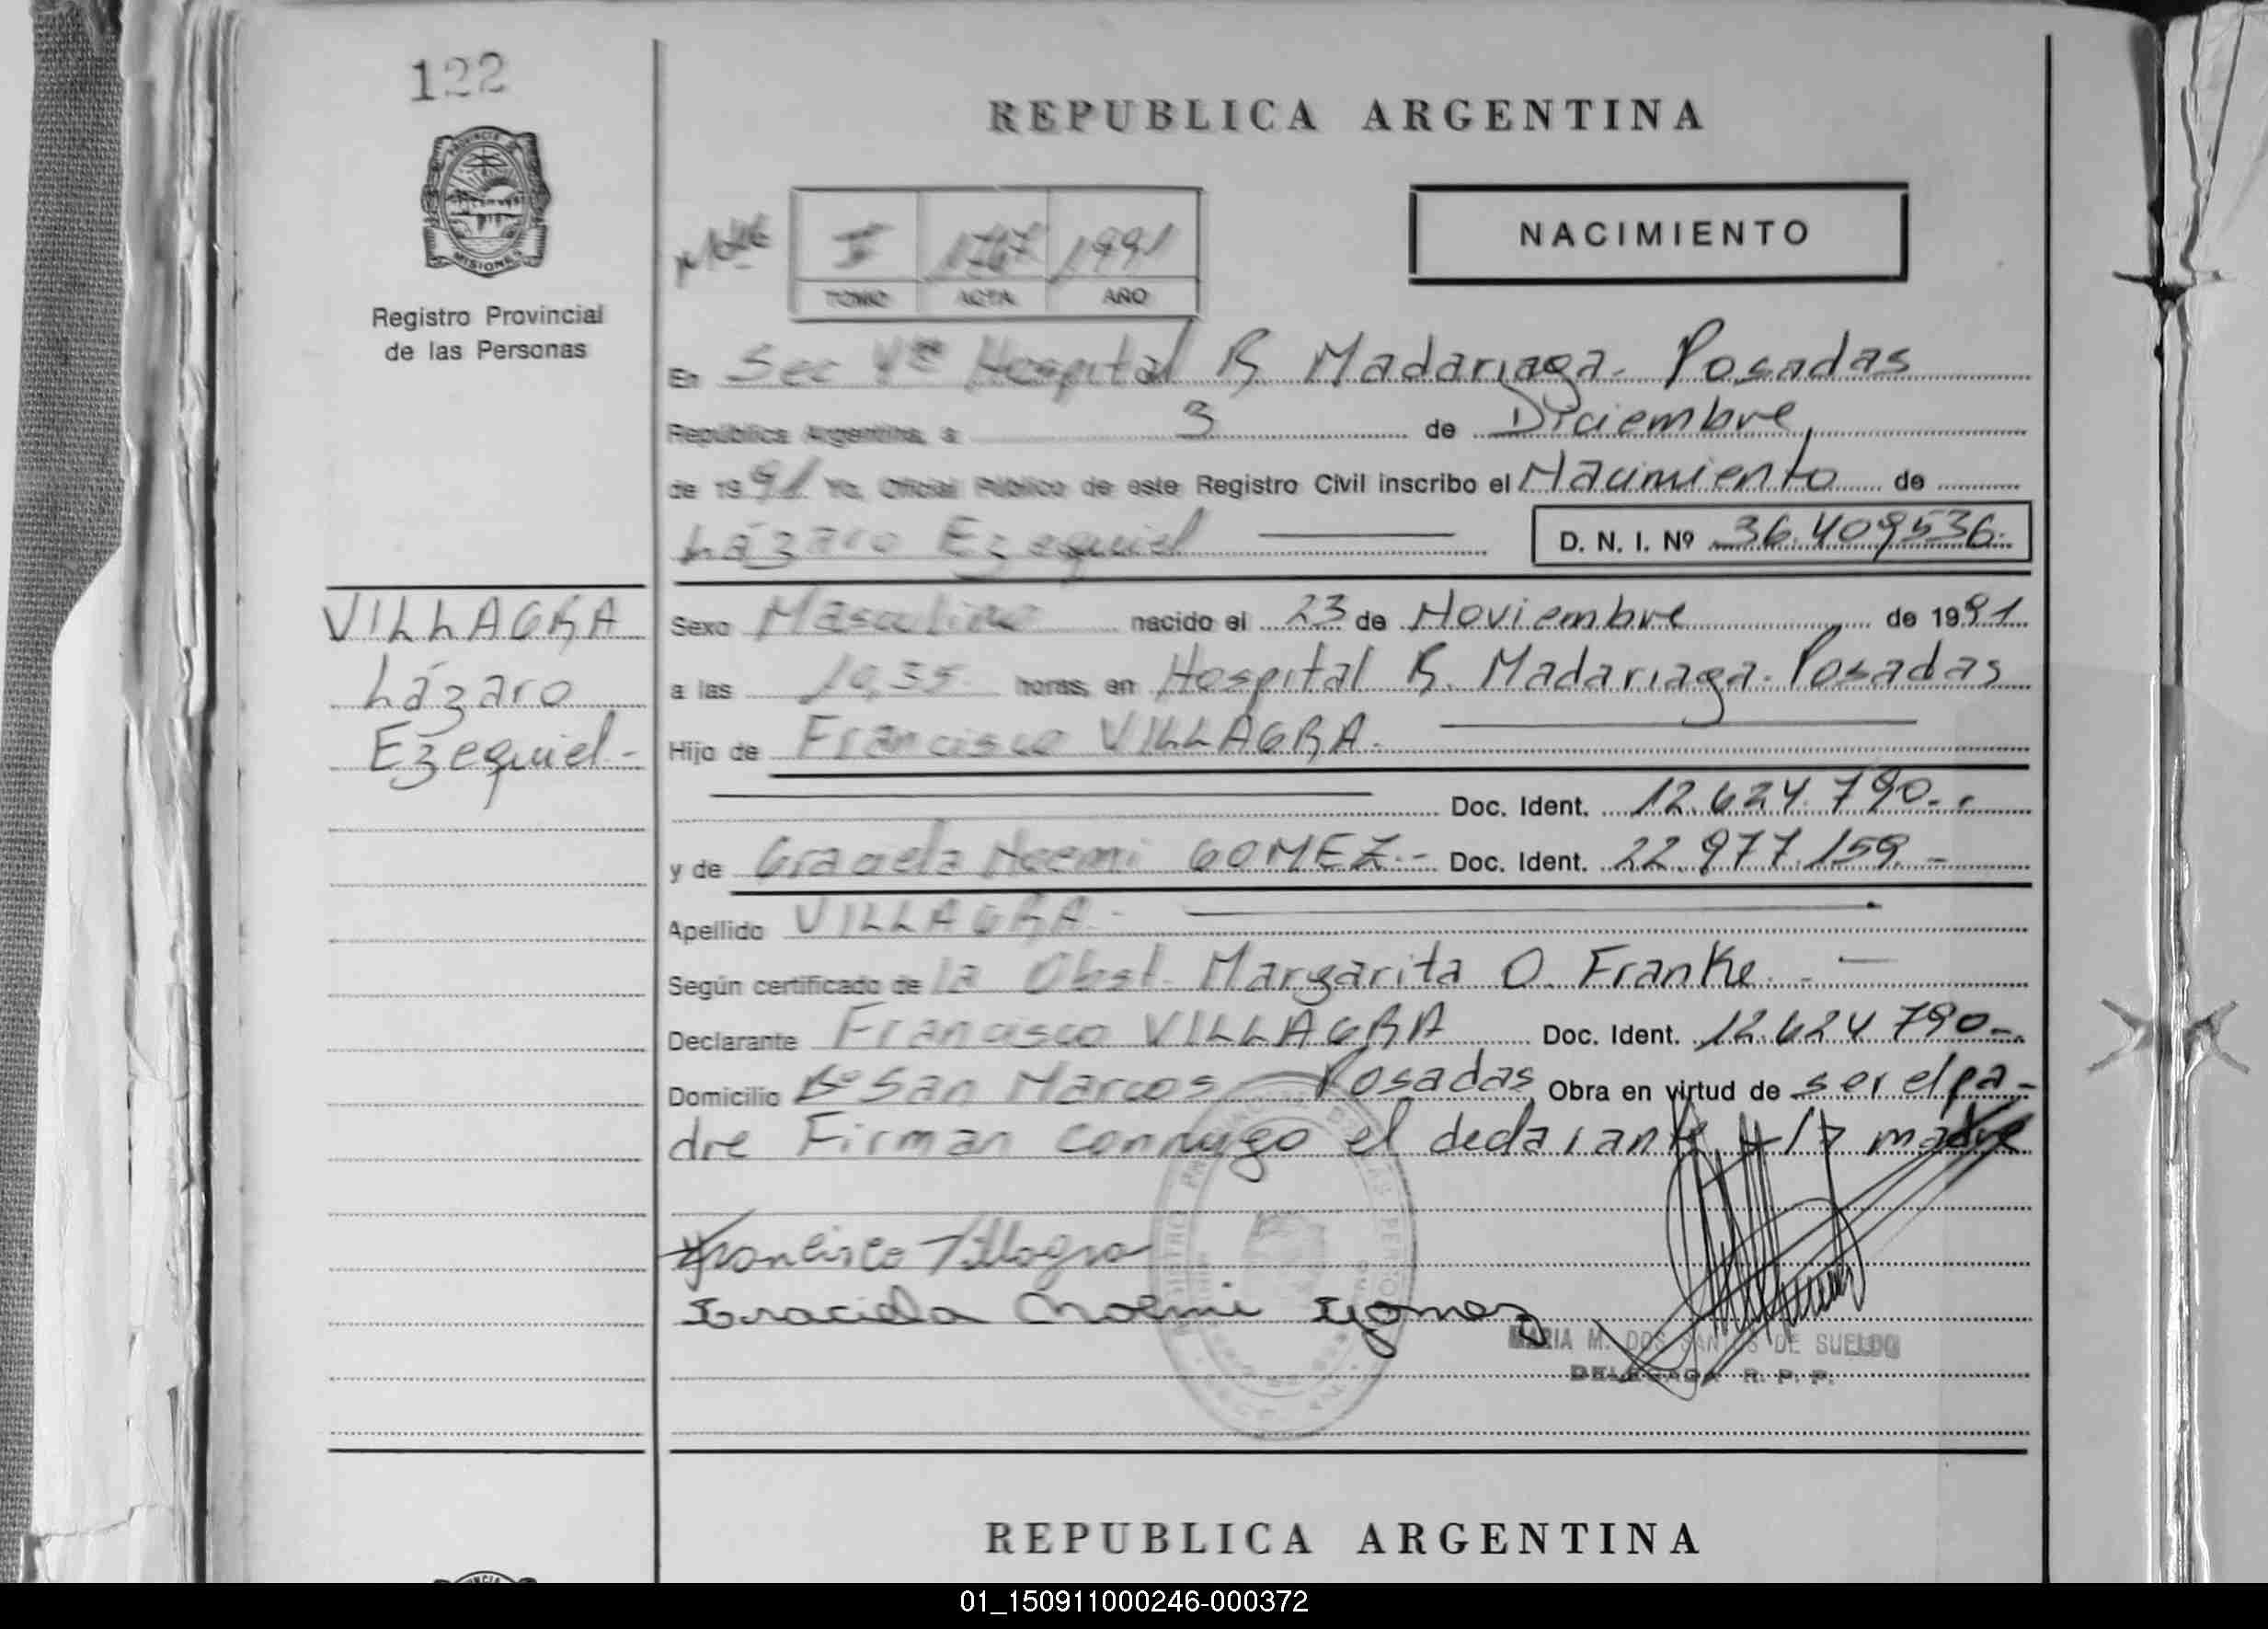 122
PROVINCIA DE
MISIONES
Registro Provincial
de las Personas
REPUBLICA ARGENTINA
1767 1991
TOMO ACTA AÑO
NACIMIENTO
En Sec Hospital R Madariaga - Posadas
República Argentina, a 3 de Diciembre
de 1991 Yo, Oficial Público de este Registro Civil inscribo el Nacimiento de
Lázaro Ezequiel D. N. I. Nº 36.409536.
VILLAGRA
Lázaro
Ezequiel -
Sexo Masculino nacido el 23 de Noviembre de 1991
a las 10,35 horas, en Hospital R. Madariaga - Posadas
Hijo de Francisco VILLAGRA.
Doc. Ident. 12.624.790.-
y de Graciela Noemi GOMEZ.- Doc. Ident. 22.977.159.-
Apellido VILLAGRA -
Según certificado de la Obst. Margarita O. Franke. -
Declarante Francisco VILLAGRA Doc. Ident. 12.624.790-
Domicilio Bº San Marcos Posadas Obra en virtud de ser el pa-
dre Firman conmigo el declarante y la madre
Francisco Villagra
Graciela Noemi Gomez
MARIA M. DOS SANTOS DE SUELDO
DELEGADA R. P. P.
REPUBLICA ARGENTINA
01_150911000246-000372